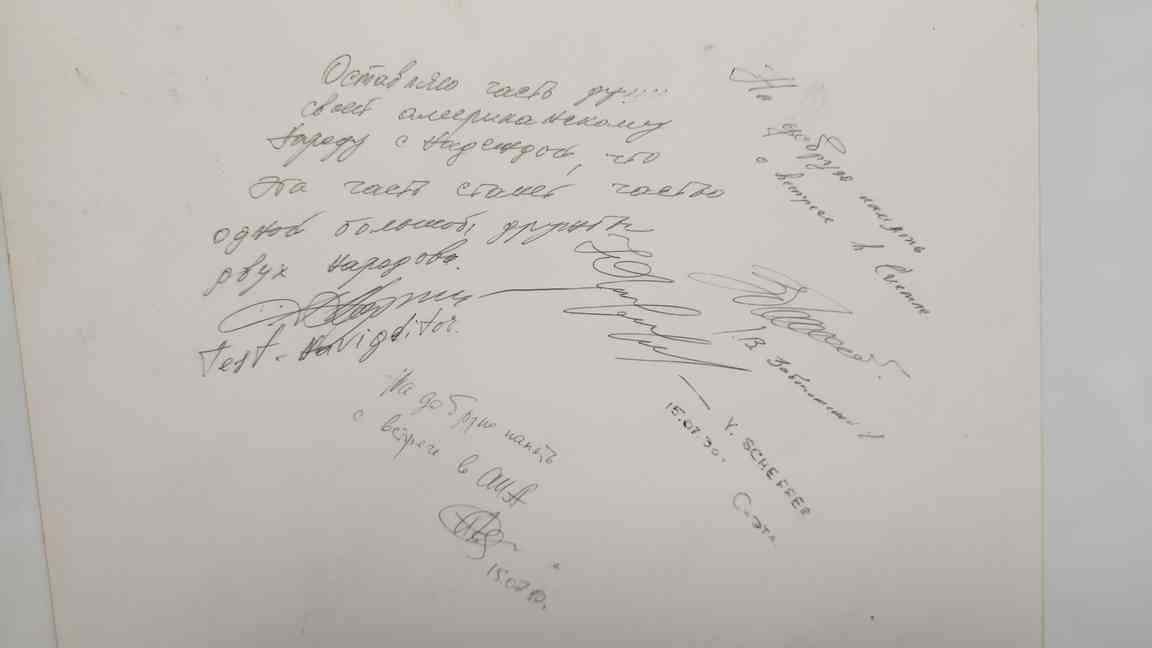 Оставляю часть души
своей американскому
народу с надеждой, что
эта часть станет частью
одной большой дружбы
двух народов.
Test-Navigator.
На добрую память
о встрече в Сиетле
В. Заболотский
Y. SCHEFFER
15.07.90г.
Сиэтл
На добрую память
о встрече в США
15.07.90г.